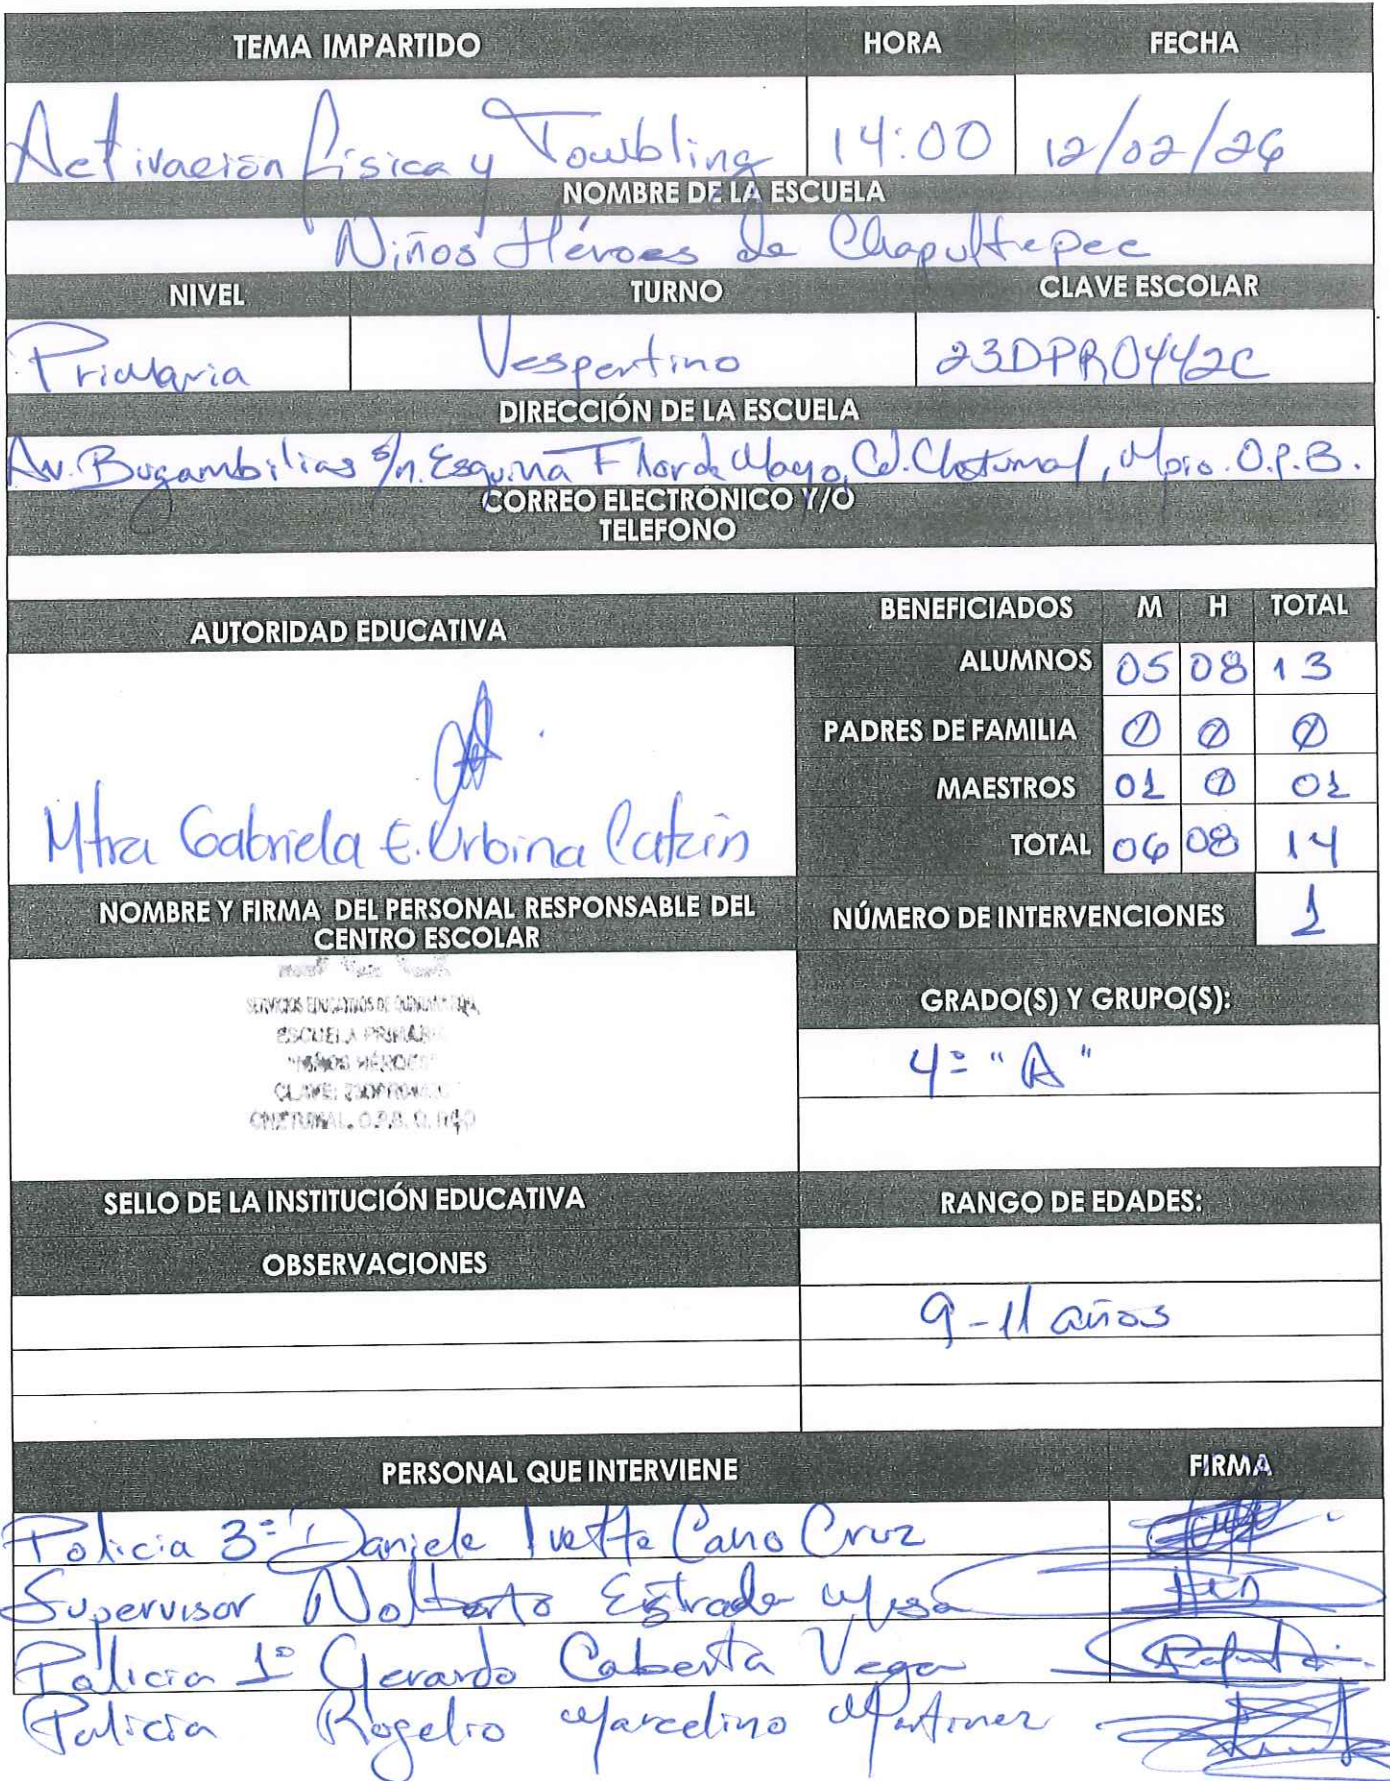 TEMA IMPARTIDO HORA FECHA
Activación física y Toubling 14:00 12/02/26
NOMBRE DE LA ESCUELA
Niños Héroes de Chapultepec
NIVEL TURNO CLAVE ESCOLAR
Primaria Vespertino 23DPR0442C
DIRECCIÓN DE LA ESCUELA
Av. Bugambilias s/n. Esquina Flor de Mayo, Cd. Chetumal, Mpio. O.P.B.
CORREO ELECTRÓNICO Y/O
TELEFONO
AUTORIDAD EDUCATIVA BENEFICIADOS M H TOTAL
ALUMNOS 05 08 13
PADRES DE FAMILIA 0 0 0
MAESTROS 01 0 01
Mtra Gabriela E. Urbina Catzin TOTAL 06 08 14
NOMBRE Y FIRMA DEL PERSONAL RESPONSABLE DEL
CENTRO ESCOLAR
NÚMERO DE INTERVENCIONES 1
SERVICIOS EDUCATIVOS DE
ESCUELA PRIMARIA
"NIÑOS HÉROES
CLAVE:
CHETUMAL, O.P.B. Q. ROO
GRADO(S) Y GRUPO(S):
4º "A"
SELLO DE LA INSTITUCIÓN EDUCATIVA RANGO DE EDADES:
OBSERVACIONES
9-11 años
PERSONAL QUE INTERVIENE FIRMA
Policia 3º Daniele Ivette Cano Cruz
Supervisor Nolberto Estrada Mesa
Policia 1º Gerardo Cabenta Vega
Policia Rogelio Marcelino Martinez